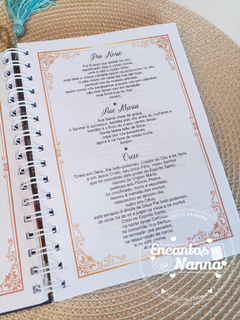 Pai Nosso
Pai Nosso que estais no céu,
santificado seja o vosso nome,
venha a nós o vosso reino,
seja feita a vossa vontade assim na terra como no céu.
O pão nosso de cada dia nos dai hoje,
perdoai-nos as nossas ofensas
assim como nós perdoamos a quem nos tem ofendido,
não nos deixei cair em tentação
mas livrai-nos do mal.
Amém.
Ave Maria
Ave Maria cheia de graça,
o Senhor é convosco, bendita sois vós entre as mulheres e
bendito é o fruto do vosso ventre Jesus.
Santa Maria mãe de Deus,
rogai por nós pecadores,
agora e na hora de nossa morte.
Amém.
Creio
"Creio em Deus, Pai todo-poderoso, Criador do Céu e da Terra
e em Jesus Cristo, seu único Filho, Nosso Senhor
que foi concebido pelo poder do Espírito Santo;
nasceu da Virgem Maria;
padeceu sob Pôncio Pilatos,
foi crucificado, morto e sepultado;
desceu à mansão dos mortos;
ressuscitou ao terceiro dia;
subiu aos céus;
está sentado à direita de Deus Pai todo-poderoso,
de onde há de vir a julgar os vivos e os mortos.
Creio no Espírito Santo;
na Santa Igreja Católica;
na comunhão dos Santos;
na remissão dos pecados;
na ressurreição da carne;
na vida
Encantos
da Nanna